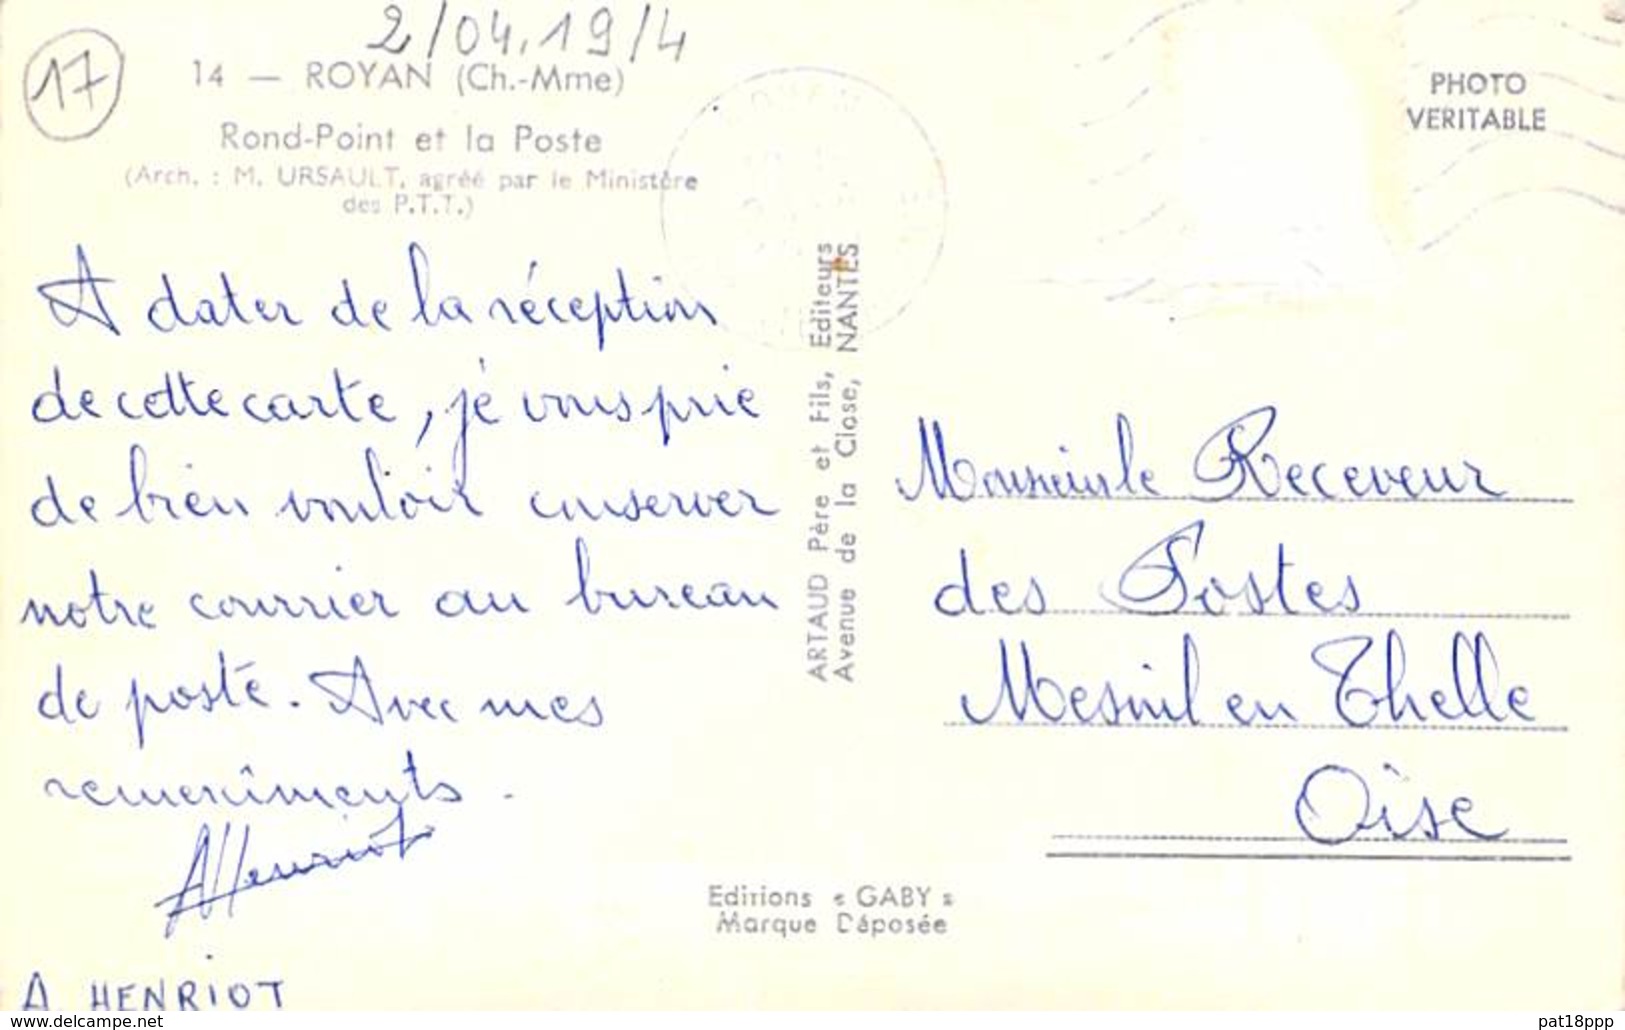 2/04.19/4
17
14 — ROYAN (Ch.-Mme)
Rond-Point et la Poste
(Arch. : M. URSAULT, agréé par le Ministère
des P.T.T.)
PHOTO
VERITABLE
A dater de la réception
de cette carte, je vous prie
de bien vouloir conserver
notre courrier au bureau
de poste. Avec mes
remerciments.
AHenriot
A. HENRIOT
ARTAUD Père et Fils, Editeurs
Avenue de la Close, NANTES
Monsieur le Receveur
des Postes
Mesnil en Thelle
Oise
Editions « GABY »
Marque Déposée
www.delcampe.net
pat18ppp